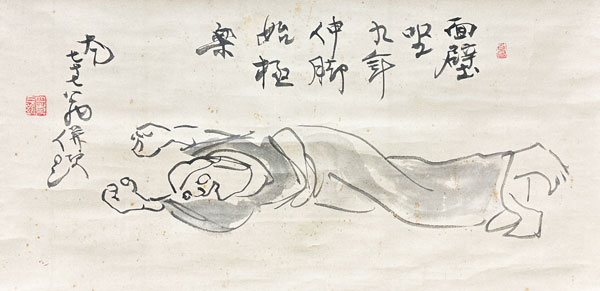 面壁
坐
九年
伸脚
始極
楽
七十七翁